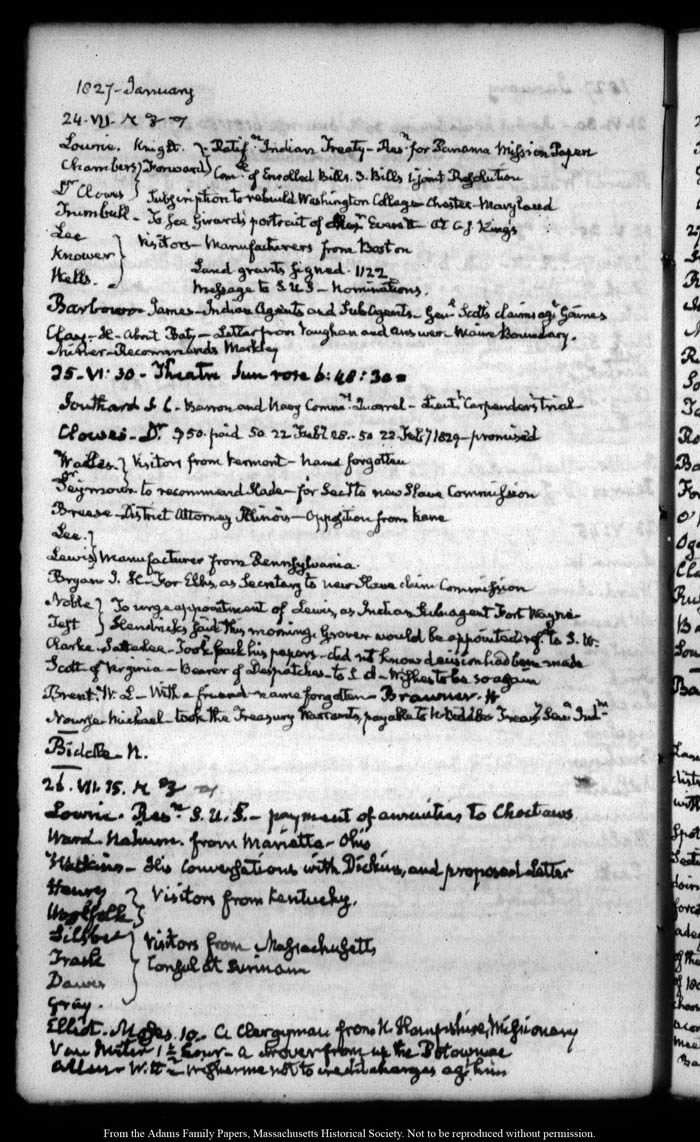 1827-January
24. VII.
Lowrie. Knight. Ratifn Indian Treaty - Resn for Panama Mission Papers
Chambers Forward Come of Enrolled Bills. 3. Bills 1 joint Resolution
Dr Clowes Subscription to rebuild Washington College Chester-Maryland
Trumbull - To see Girard's portrait of Everett at C. J. King's
Lee
Knower Visitors - Manufacturers from Boston
Wells. Land grants signed. 1122
Message to S.U.S - Nominations.
Barbour James - Indian Agents and Sub Agents - Genl Scott's claims agt Gaines
Clay - H - About Baty - Letter from Vaughan and answer. Maine Boundary.
Recommends Markley
25. VI: 30 - Theatre Sun rose 6:48:30
Southard S L. Barron and Navy Commn Quarrel - Lieutt Carpender's trial
Clowes - Dr $50. paid 50. 22 Feby 28 - 50 22 Feby 1829 - promised
Wales Visitors from Vermont - name forgotten
Seymour to recommend Slade - for Secy to new Slave Commission
Breese - District Attorney Illinois - Opposition from Kane
Lee.
Lewis Manufacturer from Pennsylvania.
Bryan J. H - For Ellis, as Secretary to new Slave claim Commission
Noble To urge appointment of Lewis, as Indian Subagent Fort Wayne
Test Hendricks said this morning Grover would be appointed
Clarke - Satterlee - Took back his papers - did not know decision had been made
Scott of Virginia - Bearer of Despatches - to wishes to be so again
Brent. W. L - With a friend - name forgotten - Brawner. H
Nourse Michael - took the Treasury Warrants, payable to N. Biddle
Biddle - N.
26. VII. 15.
Lowrie. Resn S. U. S. - payment of annuities to Choctaws
Ward Nahum. from Marietta - Ohio
Watkins - His conversations with Dickins, and proposed Letter
Henry Visitors from Kentucky.
Woolfolk
Silsbee Visitors from Massachusetts
Trask Consul at Surinam
Daws
Gray.
Elliot. Moses. 10. A Clergyman from N. Hampshire, Missionary
Van Meter 1½ hour - a drover from up the Potowmac
Allen - Wm wishes me not to credit charges agt him